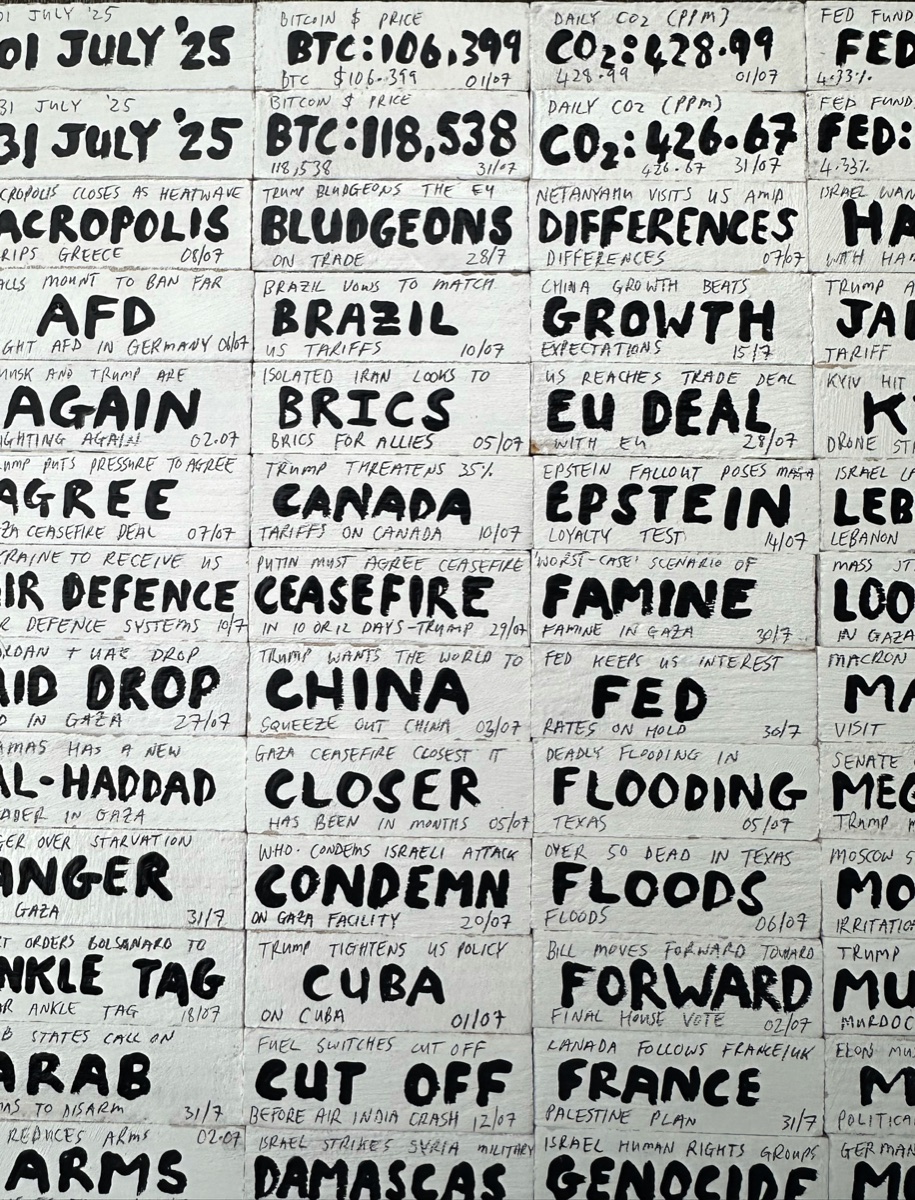 01 JULY '25
01 JULY '25
BITCOIN $ PRICE
BTC:106,399
BTC $106.399 01/07
DAILY CO2 (PPM)
CO2:428.99
428.99 01/07
FED FUND
FED
4.33%
31 JULY '25
31 JULY '25
BITCOIN $ PRICE
BTC:118,538
118,538 31/07
DAILY CO2 (PPM)
CO2:426.67
426.67 31/07
FED FUND
FED:
4.33%
CROPOLIS CLOSES AS HEATWAVE
ACROPOLIS
RIPS GREECE 08/07
TRUMP BLUDGEONS THE EU
BLUDGEONS
ON TRADE 28/7
NETANYAHU VISITS US AMID
DIFFERENCES
DIFFERENCES 07/07
ISRAEL WAN
HA
WITH HAM
ALLS MOUNT TO BAN FAR
AFD
GHT AFD IN GERMANY 06/07
BRAZIL VOWS TO MATCH
BRAZIL
US TARIFFS 10/07
CHINA GROWTH BEATS
GROWTH
EXPECTATIONS 15/7
TRUMP A
JA
TARIFF
MUSK AND TRUMP ARE
AGAIN
IGHTING AGAIN 02.07
ISOLATED IRAN LOOKS TO
BRICS
BRICS FOR ALLIES 05/07
US REACHES TRADE DEAL
EU DEAL
WITH EU 28/07
KYIV HIT
K
DRONE ST
UMP PUTS PRESSURE TO AGREE
AGREE
ZA CEASEFIRE DEAL 07/07
TRUMP THREATENS 35%
CANADA
TARIFFS ON CANADA 10/07
EPSTEIN FALLOUT POSES MAGA
EPSTEIN
LOYALTY TEST 14/07
ISRAEL LA
LEB
LEBANON
KRAINE TO RECEIVE US
IR DEFENCE
R DEFENCE SYSTEMS 10/7
PUTIN MUST AGREE CEASEFIRE
CEASEFIRE
IN 10 OR 12 DAYS-TRUMP 29/07
'WORST-CASE' SCENARIO OF
FAMINE
FAMINE IN GAZA 30/7
MASS
LOO
IN GAZA
RDAN + UAE DROP
AID DROP
D IN GAZA 27/07
TRUMP WANTS THE WORLD TO
CHINA
SQUEEZE OUT CHINA 03/07
FED KEEPS US INTEREST
FED
RATES ON HOLD 30/7
MACRON
MA
VISIT
AMAS HAS A NEW
AL-HADDAD
EADER IN GAZA
GAZA CEASEFIRE CLOSEST IT
CLOSER
HAS BEEN IN MONTHS 05/07
DEADLY FLOODING IN
FLOODING
TEXAS 05/07
SENATE
MEG
TRUMP
GER OVER STARVATION
ANGER
GAZA 31/7
WHO. CONDEMS ISRAELI ATTACK
CONDEMN
ON GAZA FACILITY 20/07
OVER 50 DEAD IN TEXAS
FLOODS
FLOODS 06/07
MOSCOW S
MO
IRRITATIO
RT ORDERS BOLSANARO TO
NKLE TAG
R ANKLE TAG 18/07
TRUMP TIGHTENS US POLICY
CUBA
ON CUBA 01/07
BILL MOVES FORWARD TOWARD
FORWARD
FINAL HOUSE VOTE 02/07
TRUMP
MU
MURDOC
B STATES CALL ON
ARAB
AS TO DISARM 31/7
FUEL SWITCHES CUT OFF
CUT OFF
BEFORE AIR INDIA CRASH 12/07
KANADA FOLLOWS FRANCE/UK
FRANCE
PALESTINE PLAN 31/7
ELON MU
M
POLITICA
REDUCES ARMS 02.07
ARMS
ISRAEL STRIKES SYRIA MILITARY
DAMASCAS
ISRAEL HUMAN RIGHTS GROUPS
GENOCIDE
GERMAN